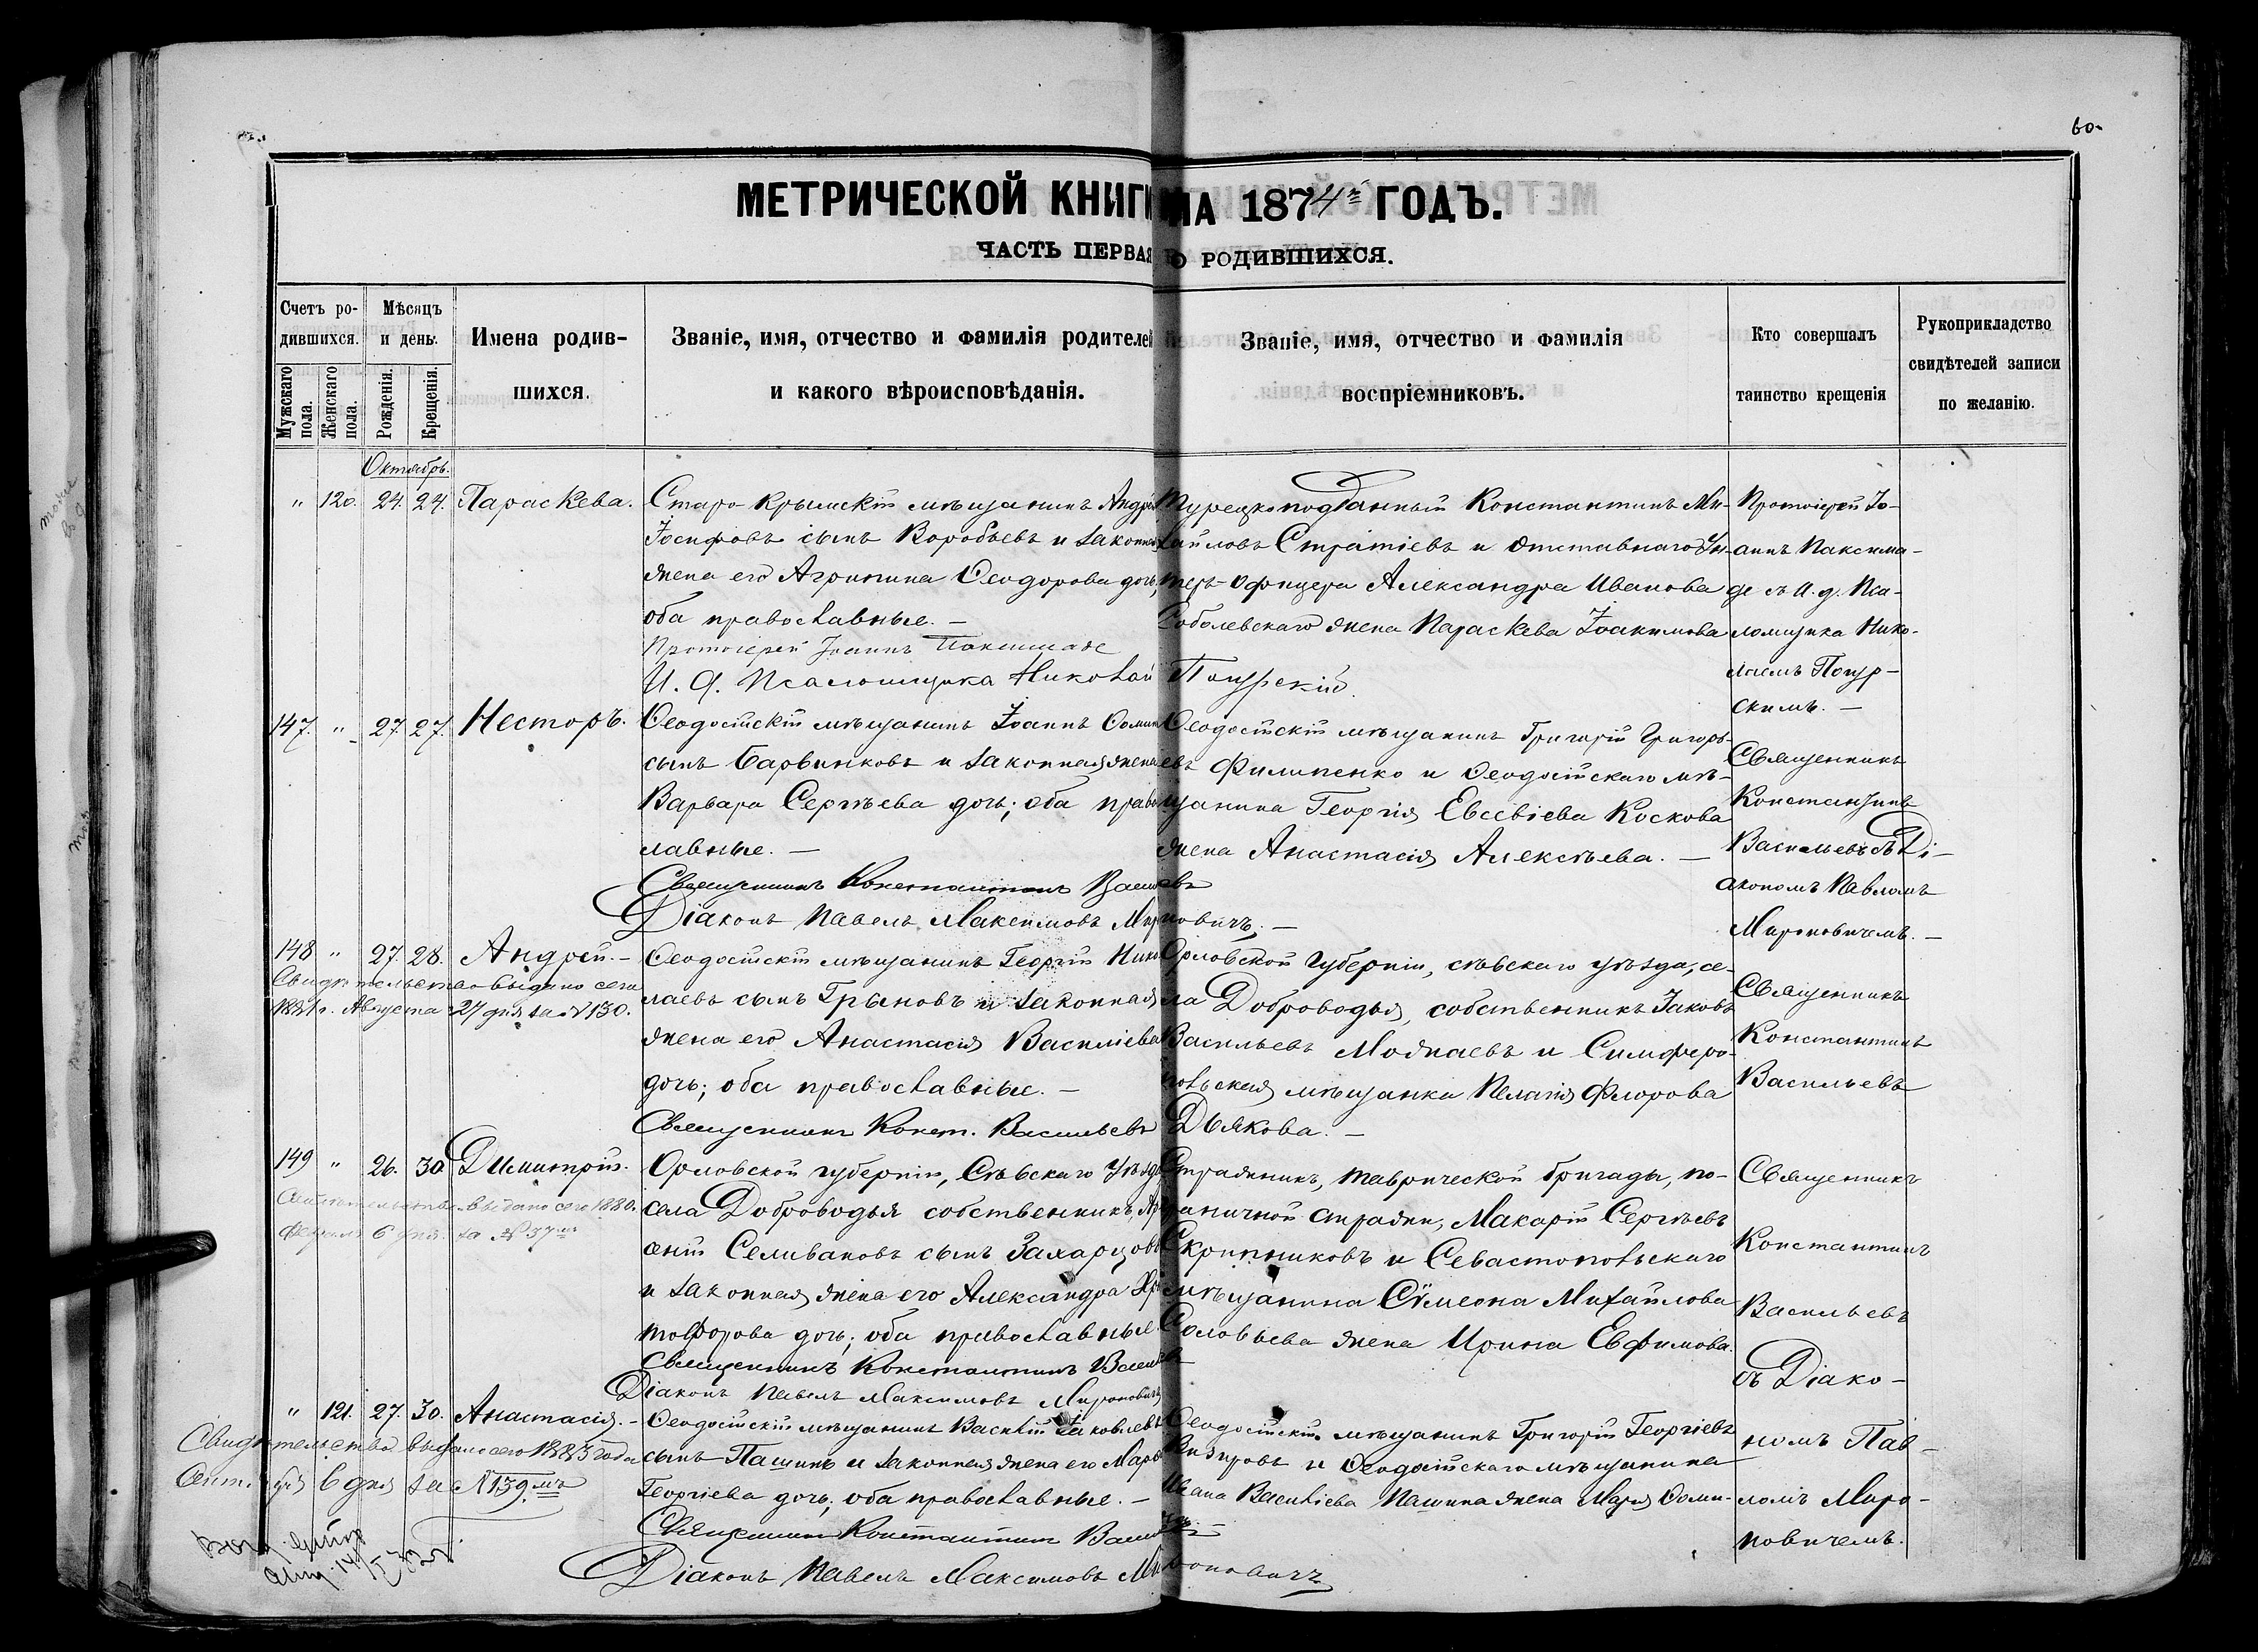 60.
МЕТРИЧЕСКОЙ КНИГИ НА 1874й ГОДЪ.
ЧАСТЬ ПЕРВАЯ О РОДИВШИХСЯ.
Счетъ ро-
дившихся.
Мужскаго пола.
Женскаго пола.
Мѣсяцъ
и день.
Рожденія.
Крещенія.
Имена родив-
шихся.
Званіе, имя, отчество и фамилія родителей
и какого вѣроисповѣданія.
Званіе, имя, отчество и фамилія
воспріемниковъ.
Кто совершалъ
таинство крещенія
Рукоприкладство
свидѣтелей записи
по желанію.
Октябрь.
" 120. 24. 24. Параскева.
Старо Крымскій мѣщанинъ Андрей
Іосифовъ сынъ Воробьевъ и законная
жена его Агрипина Ѳеодорова дочь,
оба православные. —
Протоіерей Іоаннъ Паксимаде
И. д. Псаломщика Николай Попурскій.
Турецкоподданный Константинъ Ми-
хайловъ Стратіевъ и отставнаго Ун-
теръ-офицера Александра Иванова
Соболевскаго жена Параскева Іоакимова
Протоіерей Іо-
аннъ Паксима-
де съ И. д. Пса-
ломщика Нико-
лаемъ Попур-
скимъ. —
147. " 27. 27. Несторъ.
Ѳеодосійскій мѣщанинъ Іоаннъ Ѳомин
сынъ Барвинковъ и законная жена
Варвара Сергѣева дочь; оба право
лавные. —
Священникъ Константинъ Васильевъ
Діаконъ Павелъ Максимовъ Мироновичъ. —
Ѳеодосійскій мѣщанинъ Григорій Григорь-
евъ Филипенко и Ѳеодосійскаго мѣ-
щанина Георгія Евсевіева Коскова
жена Анастасія Алексѣева. —
Священникъ
Константинъ
Васильевъ съ Ді-
акономъ Павломъ
Мироновичемъ. —
148 " 27. 28. Андрей. —
Свидѣтельство выдано сего
1881 г. Августа 27 дня за № 130.
Ѳеодосійскій мѣщанинъ Георгій Нико
лаевъ сынъ Грыновъ и законная
жена его Анастасія Василіева
дочь; оба православные. —
Священникъ Конст. Васильевъ
Орловской Губерніи, сѣвскаго уѣзда, се-
ла Доброводья, собственникъ Іаковъ
Васильевъ Можаевъ и Симферо-
польская мѣщанка Пелагія Флорова
Дьякова. —
Священникъ
Константинъ
Васильевъ
149 " 26. 30. Димитрій.
Свидѣтельство выдано сего 1880.
Февраля 6 дня за № 37мъ
Орловской губерніи, Сѣвскаго Уѣзда
села Доброводья собственникъ, Ар
сеній Селивановъ сынъ Захарцовъ
и законная жена его Александра Хри
тофорова дочь; оба православные.
Священникъ Константинъ Васильевъ
Діаконъ Павелъ Максимовъ Мироновичъ
Стражникъ, таврической бригады, по-
граничной стражи, Макарій Сергѣевъ
Скрипниковъ и Севастопольскаго
мѣщанина Сѵмеона Михайлова
Соловьева жена Ирина Евфимова.
Священникъ
Константинъ
Васильевъ
съ Діако-
" 121. 27. 30. Анастасія. —
Свидѣтельство выдано сего 1883 года
6 дня за № 139.мъ
Ѳеодосійскій мѣщанинъ Василій Іаковлевъ
сынъ Пашинъ и законная жена его Марѳ
Георгіева дочь; оба православные. —
Священникъ Константинъ Васильевъ
Діаконъ Павелъ Максимовъ Мироновичъ
Ѳеодосійскій мѣщанинъ Григорій Георгіевъ
и Ѳеодосійскаго мѣщанина
Ивана Василіева Пашина жена Марія Ѳоми-
номъ Пав-
ломъ Миро-
новичемъ.